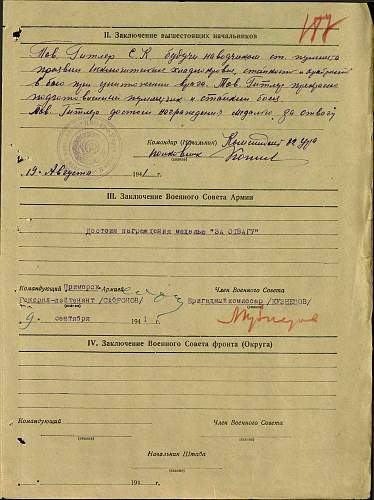 II. Заключение вышестоящих начальников
Тов. Гитлер С.К. будучи наводчиком ст. пулемета
проявил исключительное хладнокровие, стойкость и
в бою при уничтожении врага. Тов. Гитлер прекрасно
подготовленный пулеметчик и стойкий боец
Тов. Гитлер достоин награждения медалью "за отвагу"
Командир (Начальник) Комендант ура
полковник
19 Августа 1941 г.
III. Заключение Военного Совета Армии
Достоин награждения медалью "ЗА ОТВАГУ"
Командующий Приморск. Армией
Член Военного Совета
Генерал-лейтенант /САФРОНОВ/
Бригадный комиссар /КУЗНЕЦОВ/
9 сентября 1941 г.
IV. Заключение Военного Совета фронта (Округа)
Командующий
Член Военного Совета
Начальник Штаба
194 г.